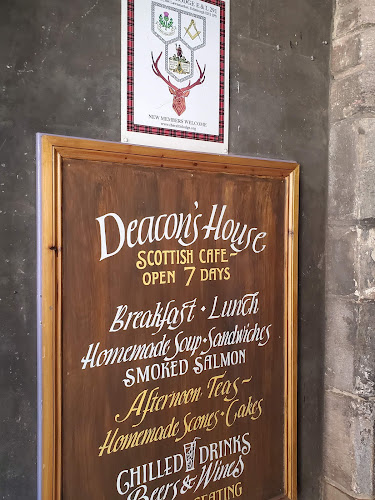 LODGE E & L 291
NEW MEMBERS WELCOME
Deacon's House
SCOTTISH CAFE~
OPEN 7 DAYS
Breakfast · Lunch
Homemade Soup · Sandwiches
SMOKED SALMON
Afternoon Teas~
Homemade Scones · Cakes
CHILLED DRINKS
Beers & Wines
SEATING